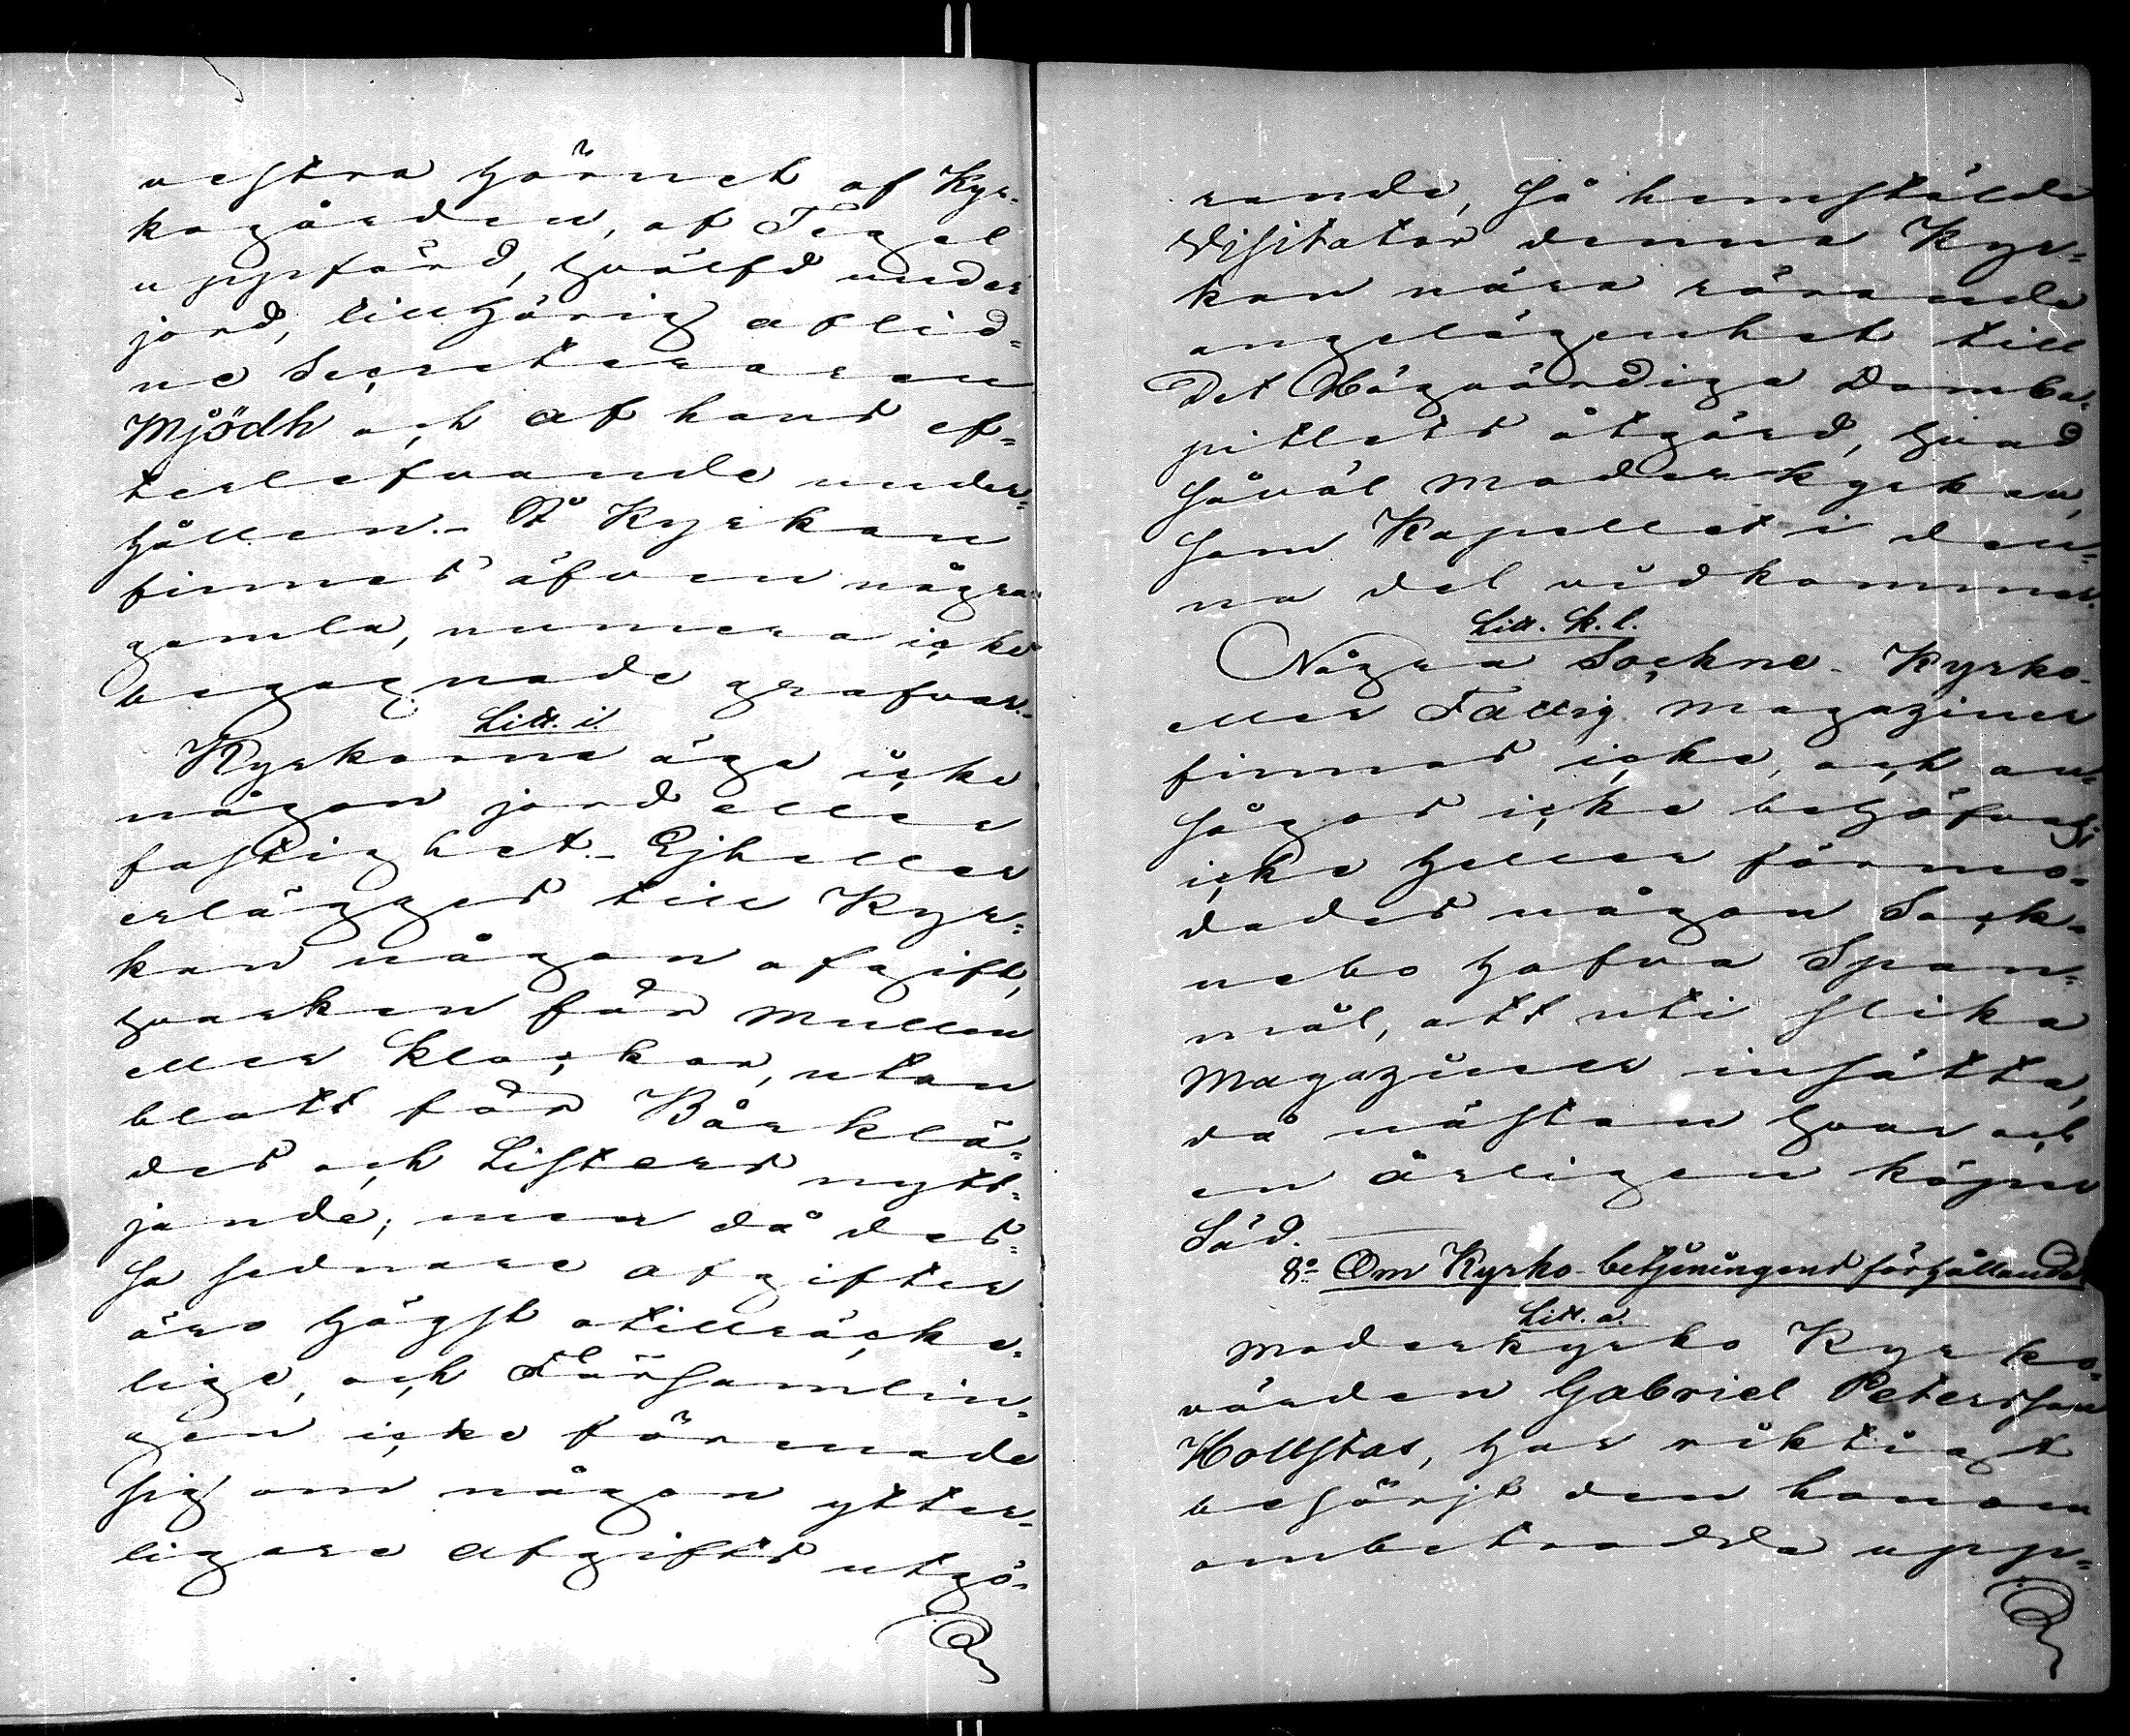 vestra hörnet af Kyr-
kogården, af Tegel
uppförd, hvälfd under
jord, tillhörig aflid-
ne Secreteraren
Mjödh och af hans ef-
terlefvande under-
hållen.- På Kyrkan
finnes äfven några
gamla, numera icke
begagnade grafvar.-
Litt. i
Kyrkorne äga icke
någon jord eller
fastighet.- Ej heller
erlägges till Kyr-
kan någon afgift,
hvarken för mullen
eller klockor, utan
blott för Bårklä-
des och Listers nytt-
jande; men då des-
sa sednare afgifter
äro högst otillräcke-
lige, och Församlin-
gen icke förenade
sig om någon ytter-
ligare afgifts utgö-
rande, så hemstälde
Visitator denna Kyr-
kan nära rörande
angelägenhet till
Det Högvärdiga Domka-
pitlets åtgärd, hvad
såväl Moderkyrkan,
som Kapellet i den-
na del vidkommer.
Litt. k. l.
Några Sockne- Kyrko-
eller Fattig magaziner
finnas icke, och an-
sågos icke behöfvas,
icke heller förmo-
dades någon Sock-
nebo hafva Span-
mål, att uti slika
Magaziner insätta,
då nästan hvar och
en årligen köper
Säd.
8o Om Kyrko-betjeningens förhållande
Litt. a.
Moderkyrko Kyrko-
värden Gabriel Petersson
Hollstas, har riktigt
besörjt den honom
ombetrodda upp-